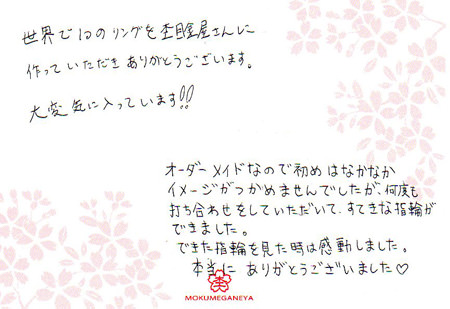 世界で1つのリングを杢目金屋さんに
作っていただきありがとうございます。
大変気に入っています!!
オーダーメイドなので初めはなかなか
イメージがつかめませんでしたが、何度も
打ち合わせをしていただいて、すてきな指輪が
できました。
できた指輪を見た時は感動しました。
本当に ありがとうございました♡
MOKUMEGANEYA